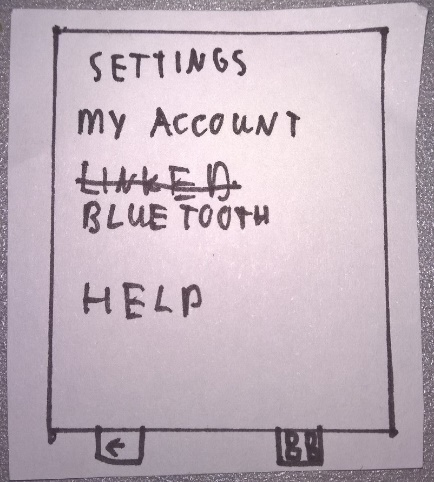 SETTINGS
MY ACCOUNT
LINKED
BLUETOOTH
HELP